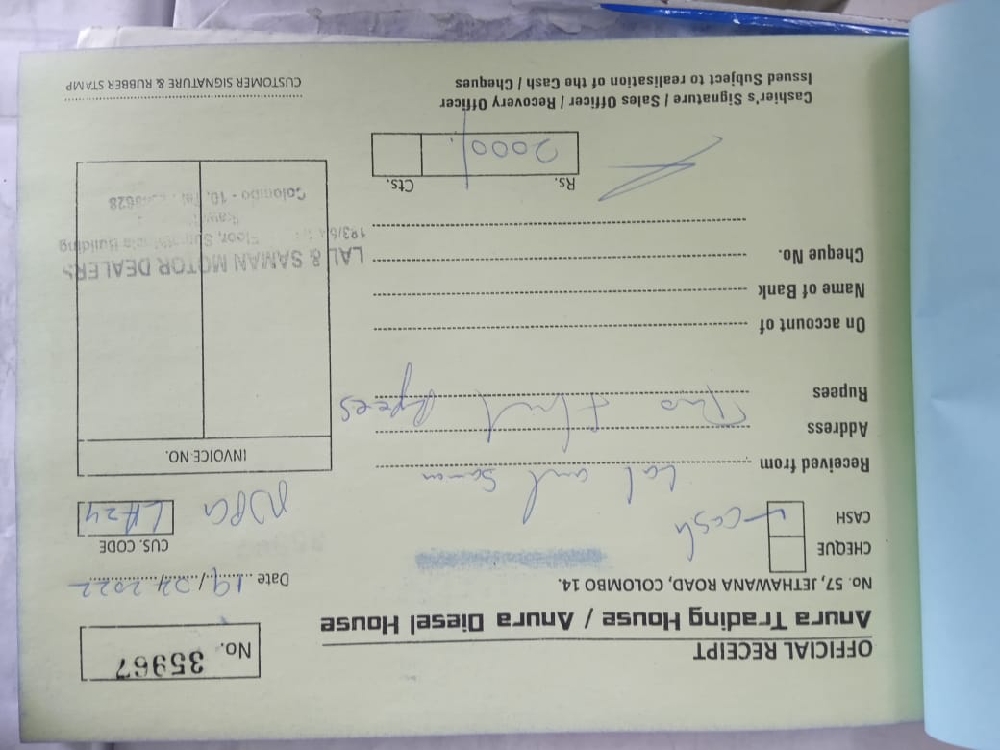 OFFICIAL RECEIPT
Anura Trading House / Anura Diesel House
No. 57, JETHAWANA ROAD, COLOMBO 14.
No. 35967
Date 19/ 2022
CHEQUE
CASH cash
CUS. CODE
L#24
Received from Lal and Saman
Address
Rupees Two Rupees
On account of
Name of Bank
Cheque No.
Rs. Cts.
2000/.
INVOICE NO.
LAL & SAMAN MOTOR DEALERS
193/5 Floor, Building
Colombo - 10. Tel
Cashier's Signature / Sales Officer / Recovery Officer
Issued Subject to realisation of the Cash / Cheques
CUSTOMER SIGNATURE & RUBBER STAMP